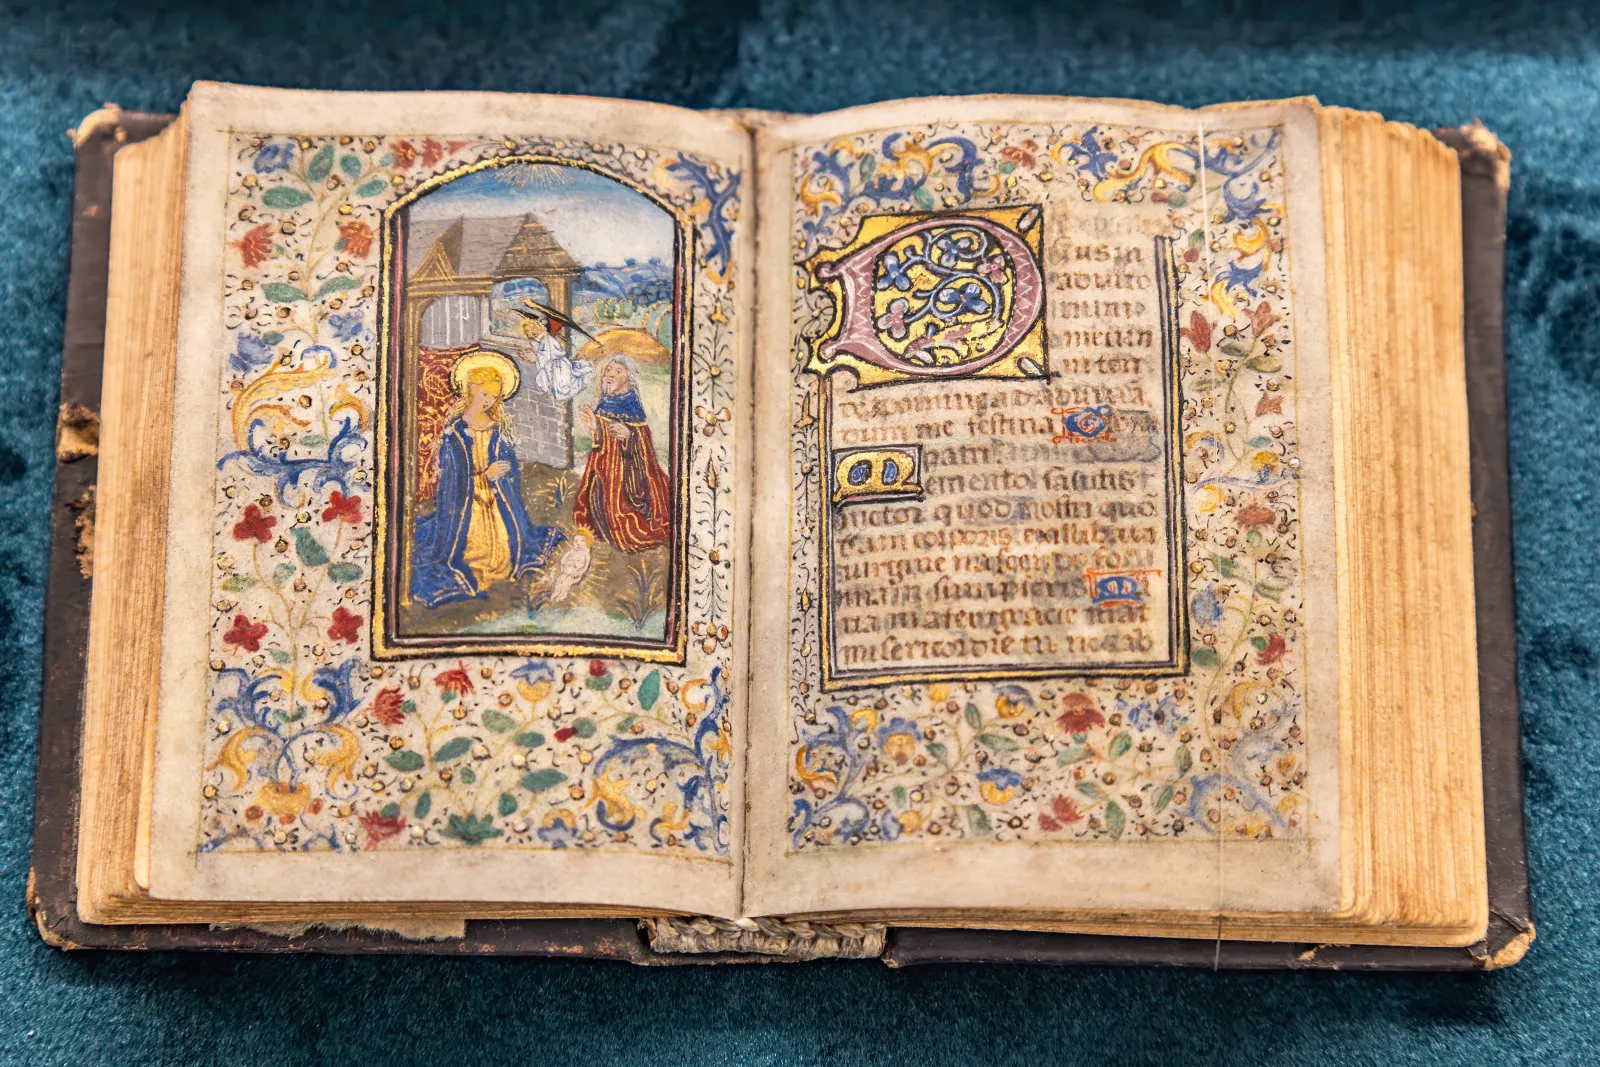 D
us in
adiuto
meum
inten
dum me festina G
patri
Memento salutis
auctor quod nostri quõ
dam corporis ex illibata
virgine nascendo for
mam sumpseris Ma
ria mater gracie mat
misericordie tu nos ab